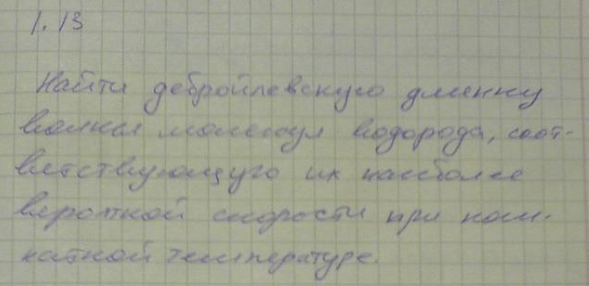 1.13
Найти дебройлевскую длинну
волны молекул водорода, соот-
ветствующую их наиболее
вероятной скорости при ком-
натной температуре.